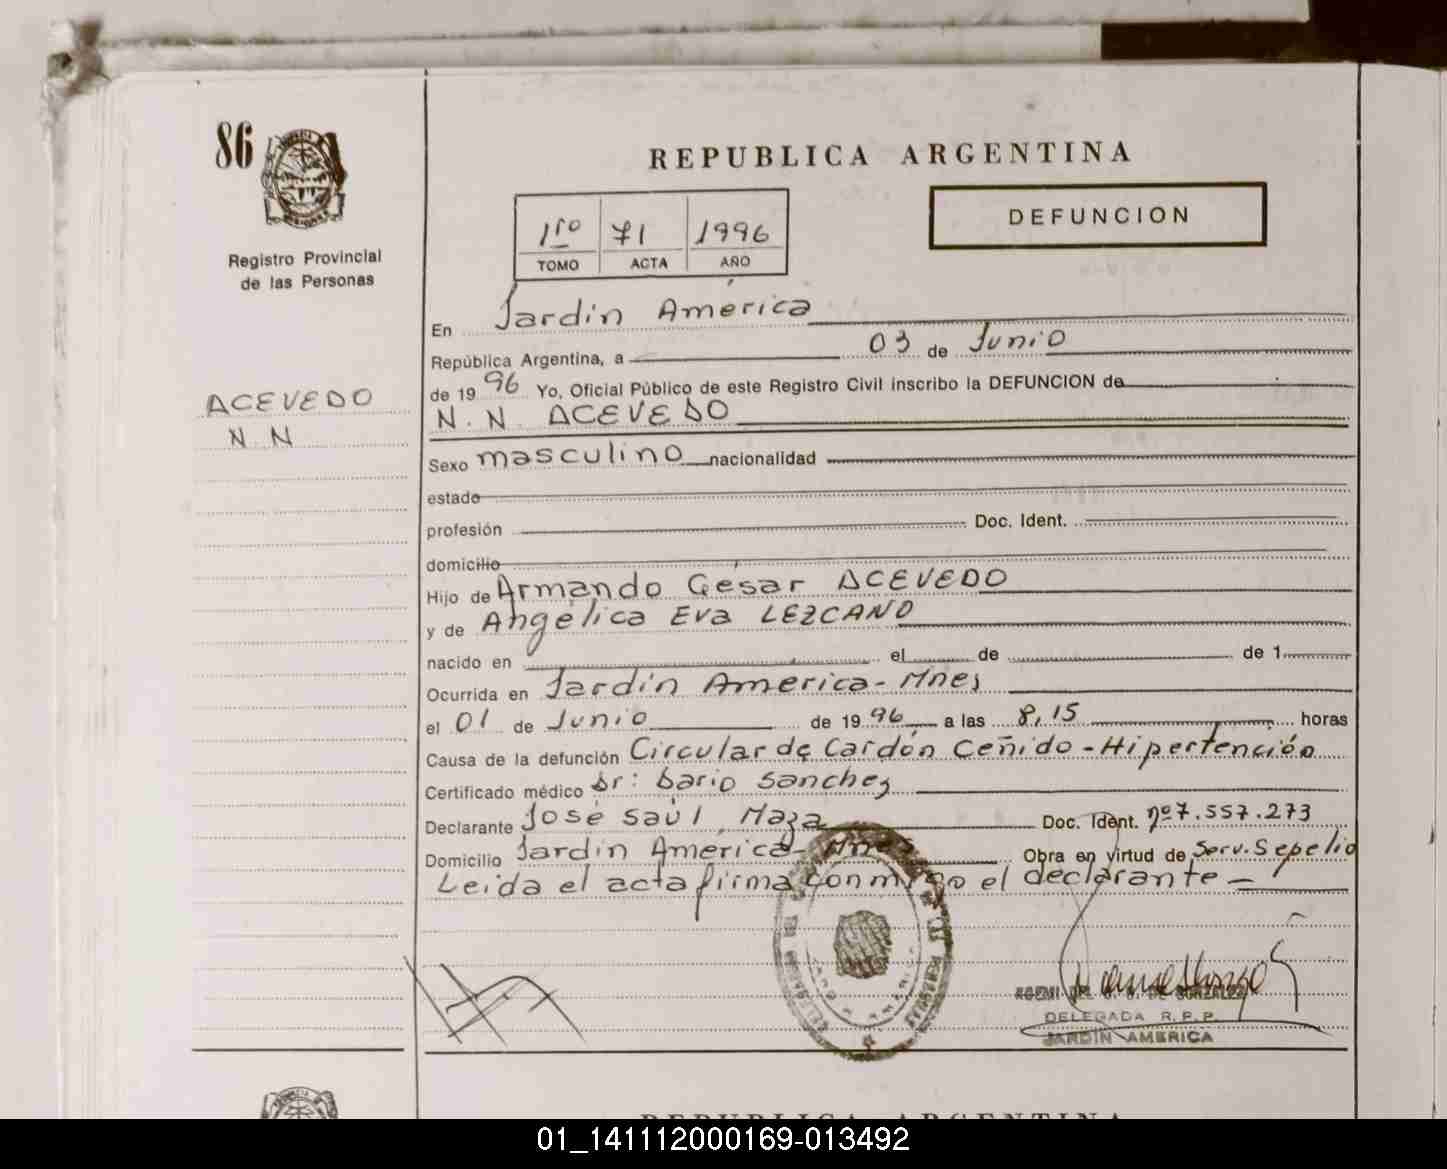 86
Registro Provincial
de las Personas
REPUBLICA ARGENTINA
1ro 71 1996
TOMO ACTA AÑO
DEFUNCION
ACEVEDO
N.N
En Jardín América
República Argentina, a 03 de Junio
de 1996 Yo, Oficial Público de este Registro Civil inscribo la DEFUNCION de
N.N ACEVEDO
Sexo masculino nacionalidad
estado
profesión Doc. Ident.
domicilio
Hijo de Armando César ACEVEDO
y de Angélica Eva LEZCANO
nacido en el de de 1
Ocurrida en Jardín América - Mnes
el 01 de Junio de 1996 a las 8,15 horas
Causa de la defunción Circular de Cardón Ceñido - Hipertención
Certificado médico Dr: Dario Sanchez
Declarante José Saúl Maza Doc. Ident. nº 7.557.273
Domicilio Jardín América - Mnes Obra en virtud de Serv. Sepelio
Leida el acta firma conmigo el declarante -
DE GONZALEZ
DELEGADA R.P.P.
JARDIN AMERICA
REPUBLICA ARGENTINA
01_141112000169-013492